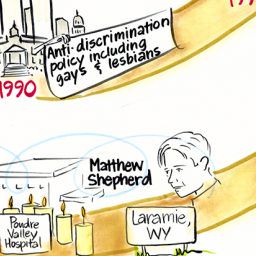 Anti-discrimination
policy including
gays & lesbians
1990
Matthew
Shepherd
Poudre
Valley
Hospital
Laramie,
WY